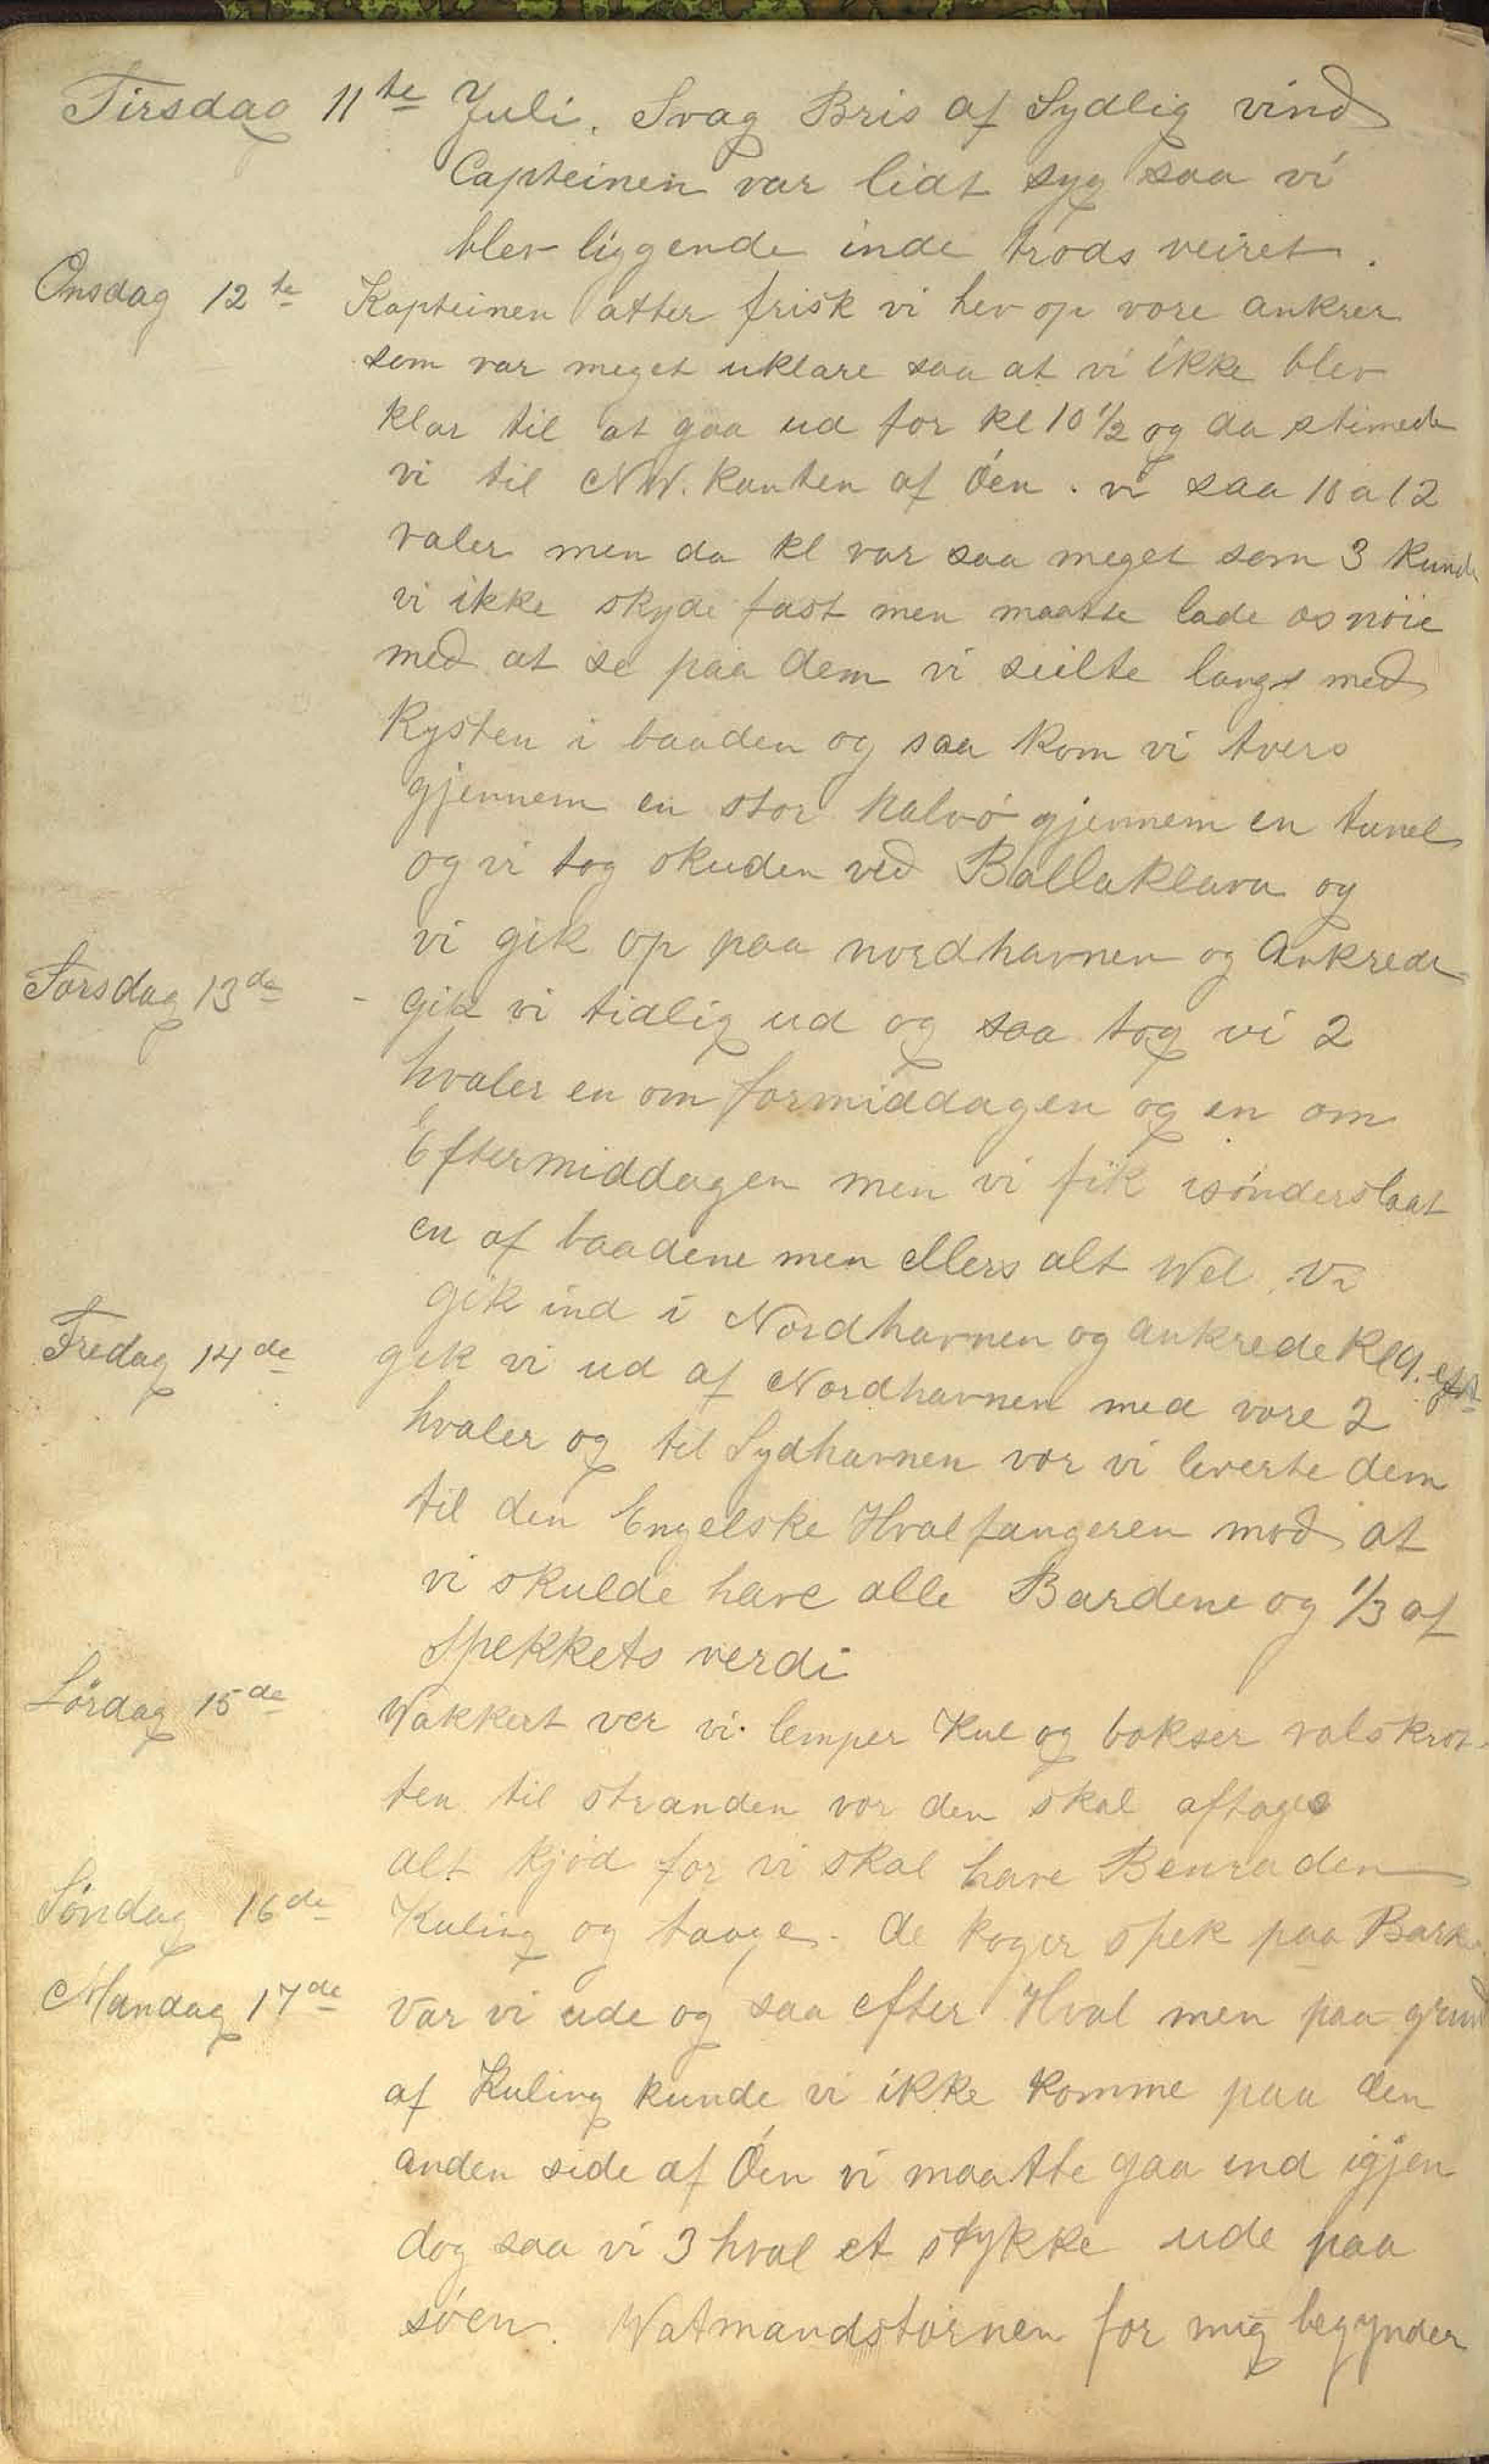 Tirsdag 11te Juli. Svag Bris af Sydlig vind
Capteinen var lidt syg saa vi
blev liggende inde trods veiret.
Onsdag 12te Kapteinen atter frisk vi hev op vore ankrer
som var meget uklare saa at vi ikke blev
klar til at gaa ud for kl 10 1/2 og da stimede
vi til NW. kanten af Öen. vi saa 10 a 12
valer men da kl var saa meget som 3 kunde
vi ikke skyde fast men maatte lade os nöie
med at se paa dem vi seilte langs med
Kysten i baaden og saa kom vi tvers
gjennem en stor halvö gjennem en tunel
og vi tog skuden ved Ballaklava og
vi gik op paa nordhavnen og ankrede
Torsdag 13de - gik vi tidlig ud og saa tog vi 2
hvaler en om formiddagen og en om
Eftermiddagen men vi fik isönderslaat
en af baadene men ellers alt Wel. Vi
gik ind i Nordhavnen og ankrede Kl 9. eft
Fredag 14de gik vi ud af Nordhavnen med vore 2
hvaler og til Sydhavnen vor vi leverte dem
til den Engelske Hvalfangeren mod at
vi skulde have alle Bardene og 1/3 af
Spekkets verdi
Lördag 15de Wakkert ver vi lemper Kul og bokser valskrot-
ten til stranden vor den skal aftages
alt kjöd for vi skal have Benraden
Söndag 16de Kuling og taage. de koger spek paa Bark.
Mandag 17de var vi ude og saa efter Hval men paa grund
af Kuling kunde vi ikke komme paa den
anden side af Öen vi maatte gaa ind igjen
dog saa vi 3 hval et stykke ude paa
söen. Watmandstörnen for mig begynder